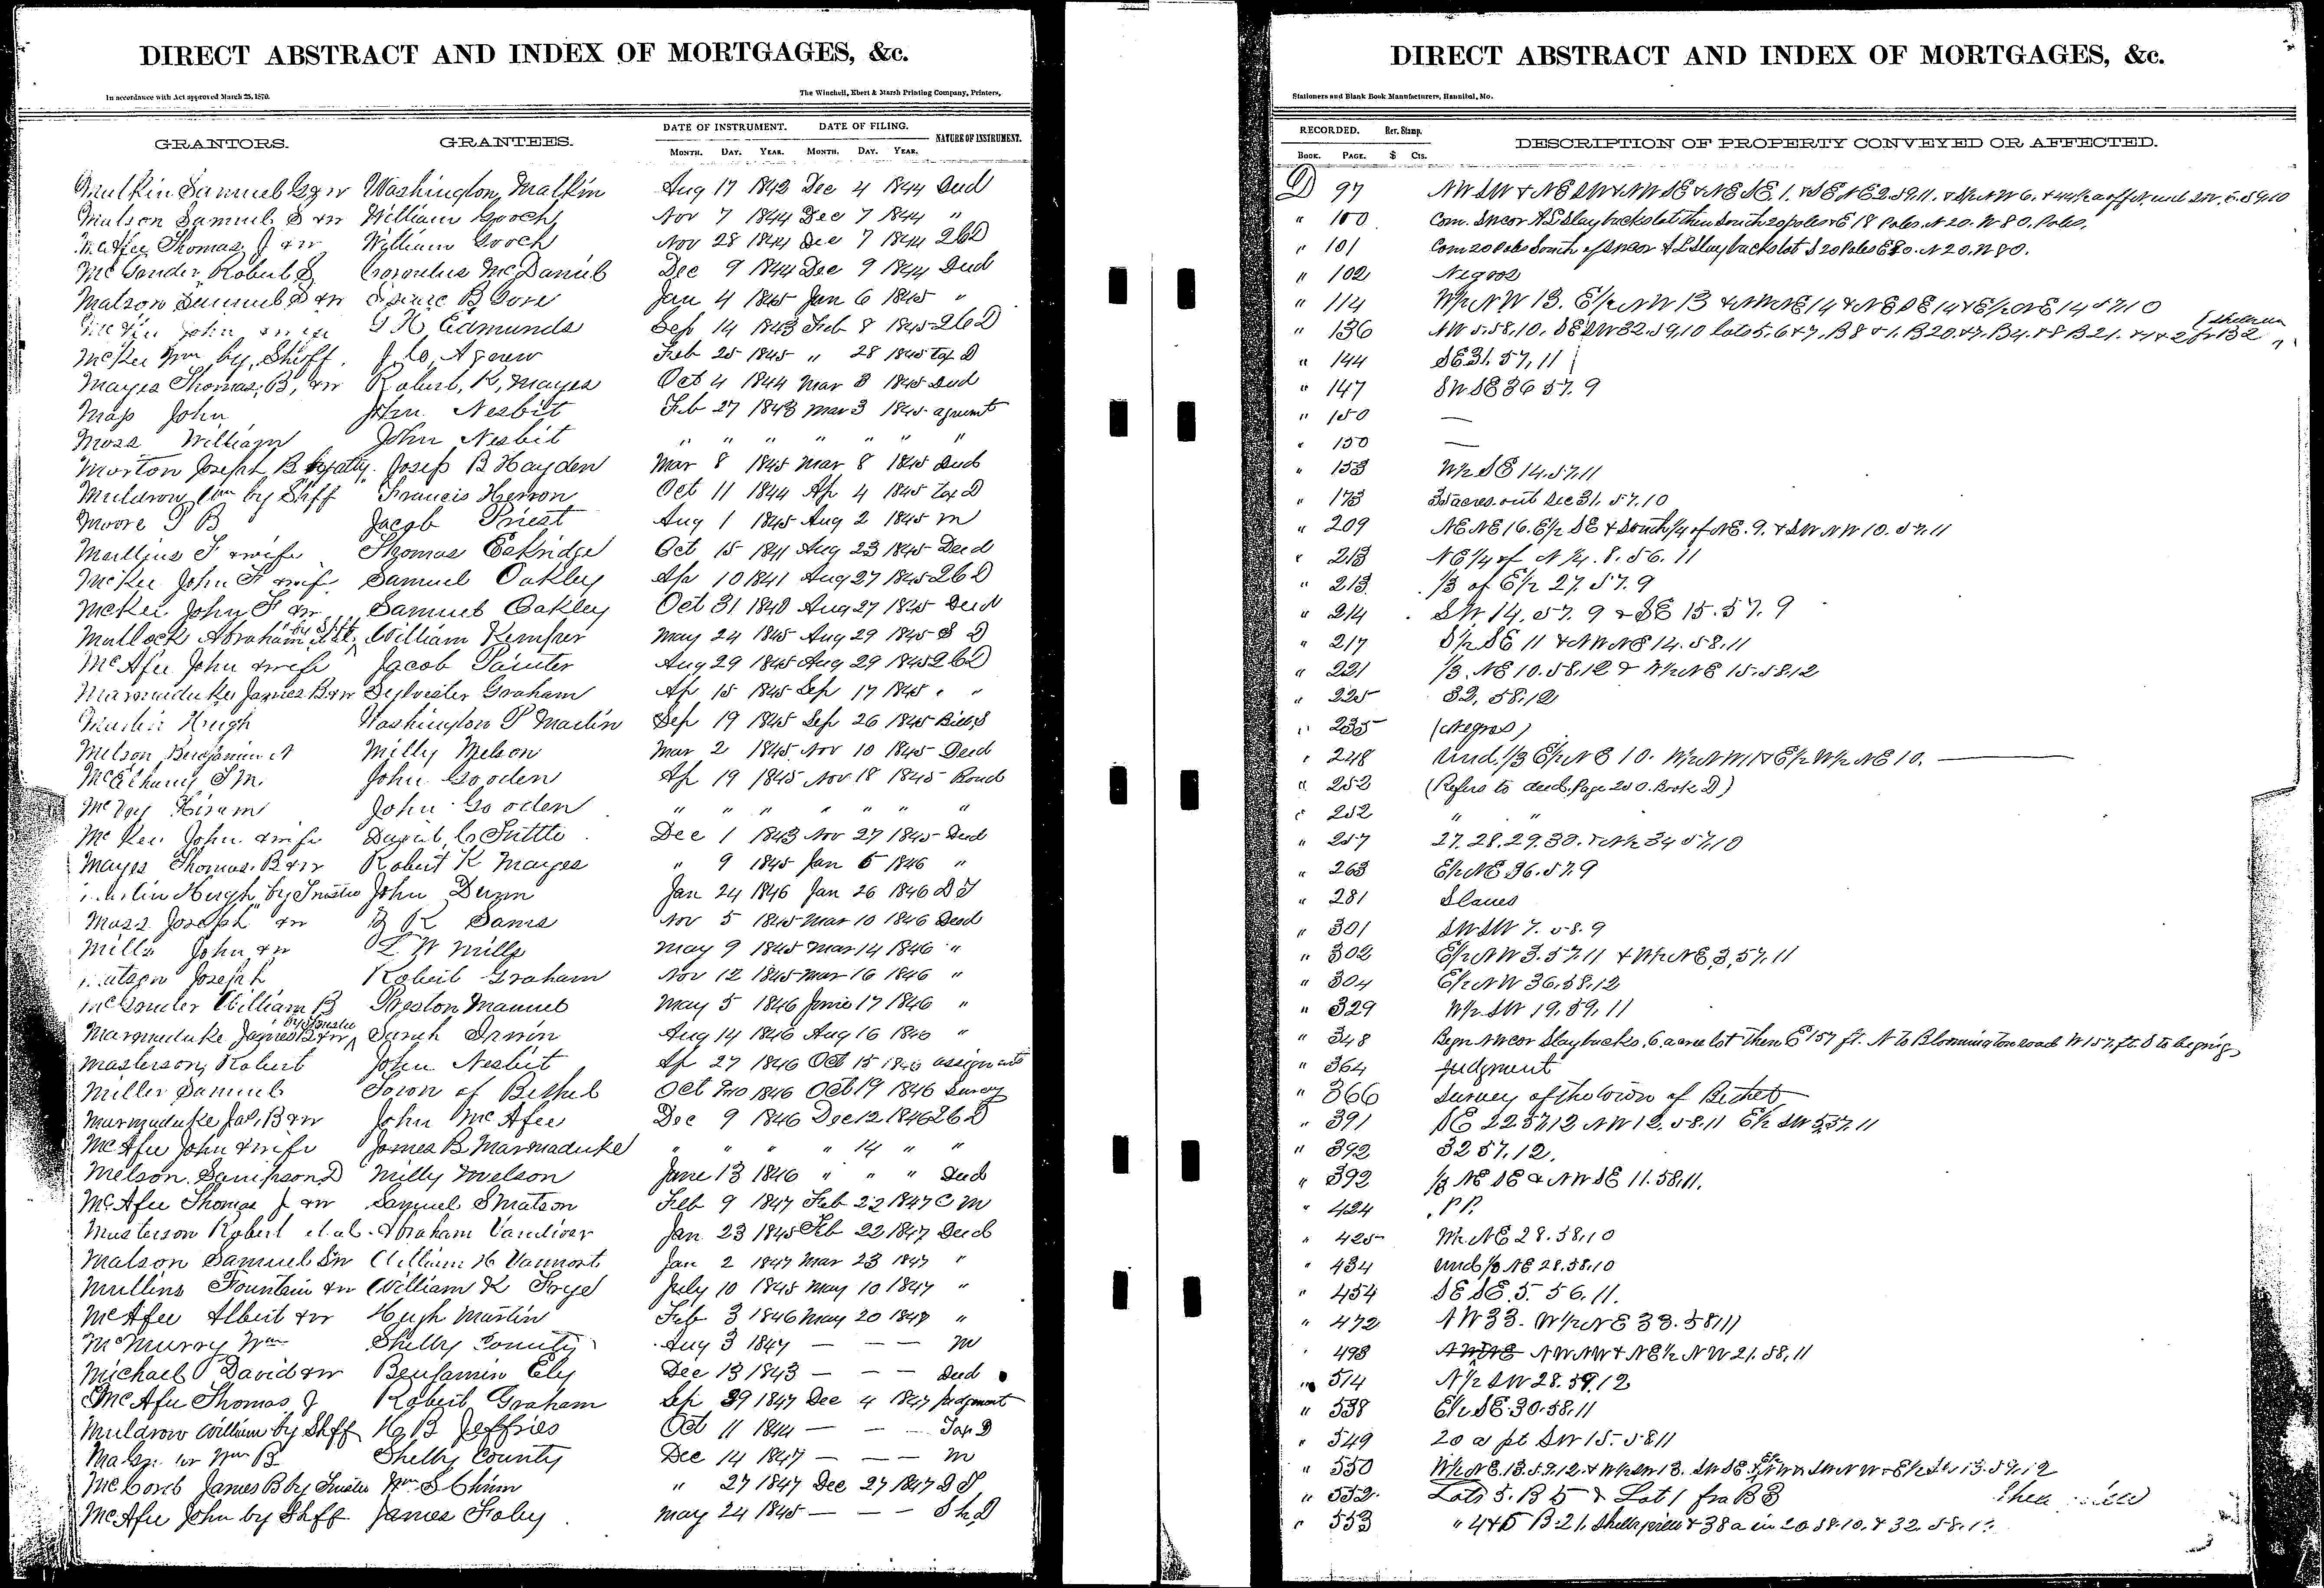 DIRECT ABSTRACT AND INDEX OF MORTGAGES, &c.
In accordance with Act approved March 25, 1870.
The Winchell, Ebert & Marsh Printing Company, Printers,
GRANTORS. GRANTEES. DATE OF INSTRUMENT. DATE OF FILING. NATURE OF INSTRUMENT.
MONTH. DAY. YEAR. MONTH. DAY. YEAR.
Samuel & wr Washington Matkin Aug 17 1842 Dec 4 1844 Deed
Matson Samuel S & wr William Gooch Nov 7 1844 Dec 7 1844 "
McAfee Thomas J & wr William Gooch Nov 28 1844 Dec 7 1844 2 6 D
Robert S McDaniel Dec 9 1844 Dec 9 1844 Deed
Matson Samuel S & wr B Gore Jan 4 1845 Jan 6 1845 "
John & wife Edmunds Sep 14 1843 Feb 8 1845 2 6 D
McKee Wm by Shff. J Co Agnew Feb 25 1845 " 28 1845 Tax D
Mayes Thomas, B, & wr Robert, K, Mayes Oct 4 1844 Mar 3 1845 Deed
John John Nesbit Feb 27 1843 Mar 3 1845 agremt
Moss William John Nesbit " " " " " " "
Morton Joseph B by atty. Josep B Hayden Mar 8 1845 Mar 8 1845 Deed
Muldrow Wm by Shff Francis Herron Oct 11 1844 Ap 4 1845 Tax D
Moore B Jacob Priest Aug 1 1845 Aug 2 1845 M
Mullins F & wife Thomas Eskridge Oct 15 1841 Aug 23 1845 Deed
McKee John F & wife Samuel Oakley Ap 10 1841 Aug 27 1845 2 6 D
McKee John F & wr Samuel Oakley Oct 31 1840 Aug 27 1845 Deed
by Shff
Mattock Abraham et al, William Kemper May 24 1845 Aug 29 1845 S D
McAfee John & wife Jacob Painter Aug 29 1845 Aug 29 1845 2 6 D
Marmaduke James B & wr Sylvester Graham Ap 15 1845 Sep 17 1845 " "
Martin Hugh Washington P Martin Sep 19 1845 Sep 26 1845 Bill S
Melson Benjamin N Milly Melson Mar 2 1845 Nov 10 1845 Deed
John Gooden Ap 19 1845 Nov 18 1845 Bond
Hiram John Gooden " " " " " " "
McKee John & wife Dec 1 1843 Nov 27 1845 Deed
Mayes Thomas B & wr Robert K Mayes " 9 1845 Jan 5 1846 "
Hugh by Trustee John Dunn Jan 24 1846 Jan 26 1846 D T
Moss Joseph & wr Sams Nov 5 1845 Mar 10 1846 Deed
Mills John & wr L W Mills May 9 1845 Mar 14 1846 "
Joseph Robert Graham Nov 12 1845 Mar 16 1846 "
William B Preston Manuel May 5 1846 June 17 1846 "
by Trustee
Marmaduke James B & wr Sarah Irwin Aug 14 1846 Aug 16 1846 "
Masterson Robert John Nesbit Ap 27 1846 Oct 15 1846 assignment
Miller Samuel Town of Bethel Oct 1846 Oct 19 1846 Survey
Marmaduke Jas, B & wr John McAfee Dec 9 1846 Dec 12 1846 2 6 D
McAfee John & wife James B Marmaduke " " " " 14 " "
Melson Sampson D Milly Melson June 13 1846 " " " Deed
McAfee Thomas J & wr Samuel S Matson Feb 9 1847 Feb 22 1847 C M
Masterson Robert et al Abraham Vandiver Jan 23 1845 Feb 22 1847 Deed
Matson Samuel & wr William H Vannort Jan 2 1847 Mar 23 1847 "
Mullins Fountain & wr William K Frye July 10 1845 May 10 1847 "
McAfee Albert & wr Hugh Martin Feb 3 1846 May 20 1847 "
McMurry Wm Shelby County Aug 3 1847 — — — M
Michael David & wr Benjamin Ely Dec 13 1843 — — — Deed
McAfee Thomas J Robert Graham Sep 29 1847 Dec 4 1847 Judgment
Muldrow William by Shff H B Jeffries Oct 11 1844 — — — Tax D
Wm B Shelby County Dec 14 1847 — — — M
McCord James B by Trustee Wm S Chinn " 27 1847 Dec 27 1847 D T
McAfee John by Shff James Foley May 24 1845 — — — Sh D
DIRECT ABSTRACT AND INDEX OF MORTGAGES, &c.
Stationers and Blank Book Manufacturers, Hannibal, Mo.
RECORDED. Rev. Stamp. DESCRIPTION OF PROPERTY CONVEYED OR AFFECTED.
BOOK. PAGE. $ Cts.
D 97 NW SW & NE SW & NW SE & NE SE, 1,
" 100 Com. Slaybacks lot then South 20 poles & E 18 Poles. N 20. W 80. Poles.
" 101 Com 20 Poles South of Slayback lot S 20 Poles E 80. N 20. W 80.
" 102 Negroes
" 114 W½ NW 13. E½ NW 13 & NW NE 14 & NE SE 14 & E½ NE 14 57.10
" 136 NW 5. 58. 10. SE SW 32. 59. 10 lots 5, 6 & 7. B 8 & 1. B 20. & 7. B 4. & 8 B 21.
" 144 SE 31. 57, 11
" 147 SW SE 36 57. 9
" 150 —
" 150 —
" 153 W½ SE 14. 57.11
" 173 35 acres. out Sec 31. 57. 10
" 209 NE NE 16. E½ SE & South ¼ of NE. 9. & SW NW 10. 57.11
" 213 NE ¼ of N ½. 8. 56. 11
" 213. ⅓ of E½ 27. 57. 9
" 214 SW 14. 57. 9 & SE 15. 57. 9
" 217 S½ SE 11 & NW NE 14. 58. 11
" 221 ⅓. NE 10. 58. 12 & W½ NE 15. 58.12
" 225 32, 58.12
" 235 (Negros)
" 248 Und. ⅓ E½ NE 10. W½ NE 10. —
" 252 (Refers to deed. Page 250. Book D)
" 252 " "
" 257 27. 28. 29. 30. & N½ 34 57.10
" 263 E½ NE 36. 57. 9
" 281 Slaves
" 301 SW SW 7. 58. 9
" 302 E½ NW 3. 57. 11 & W½ NE, 3, 57. 11
" 304 E½ NW 36. 58. 12
" 329 W½ SW 19. 59. 11
" 348 Begn NW cor Slaybacks. 6 acre lot Then E 157 ft. N to Bloomington road W 157 ft. S to begning
" 364 Judgment
" 366 Survey of the town of Bethel
" 391 SE 22 57 12 NW 12. 58. 11 E½ SW 5, 57. 11
" 392 32 57. 12.
" 392 ⅓ NE SE & NW SE 11. 58.11.
" 424 P P.
" 425 W½ NE 28. 58. 10
" 434 und ⅓ NE 28. 58. 10
" 454 SE SE. 5. 56. 11.
" 472 NW 33. W½ NE 33. 58.11
" 498 NW NW & NE ½ NW 21. 58, 11
" 514 N½ SW 28. 59. 12
" 538 E½ SE. 30. 58. 11
" 549 20 a pt SW 15. 58 11
" 550 W½ NE. 13. 59. 12. & W½ SW 13. SW SE. & E½ SW 13. 59. 12
" 552. Lots 5. B 5 & Lot 1 fra B 3
" 553 " 4 & 5 B. 21. & 38 a in 20 58. 10. & 32. 58. 1